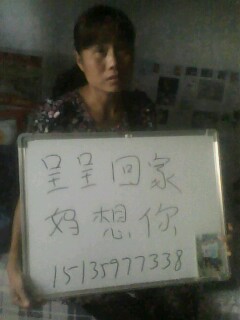 呈呈回家
妈想你
15135977338